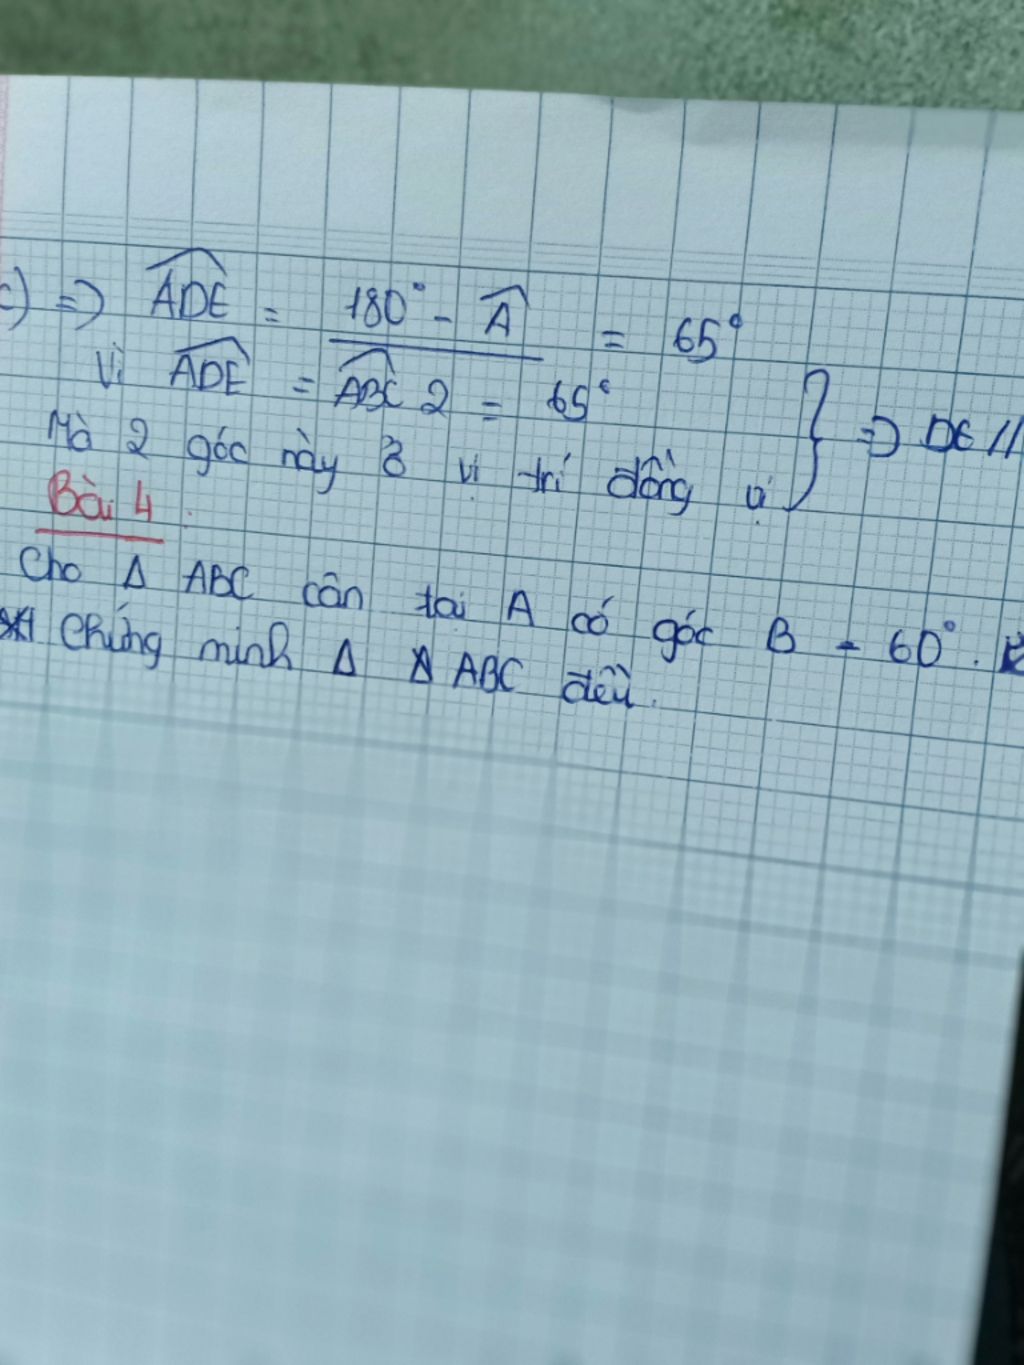 c) => ADE = 180° - A / 2 = 65°
Vì ADE = ABC = 65°
Mà 2 góc này ở vị trí đồng vị } => DE //
Bài 4:
Cho Δ ABC cân tại A có góc B = 60°.
Chứng minh Δ ABC đều.